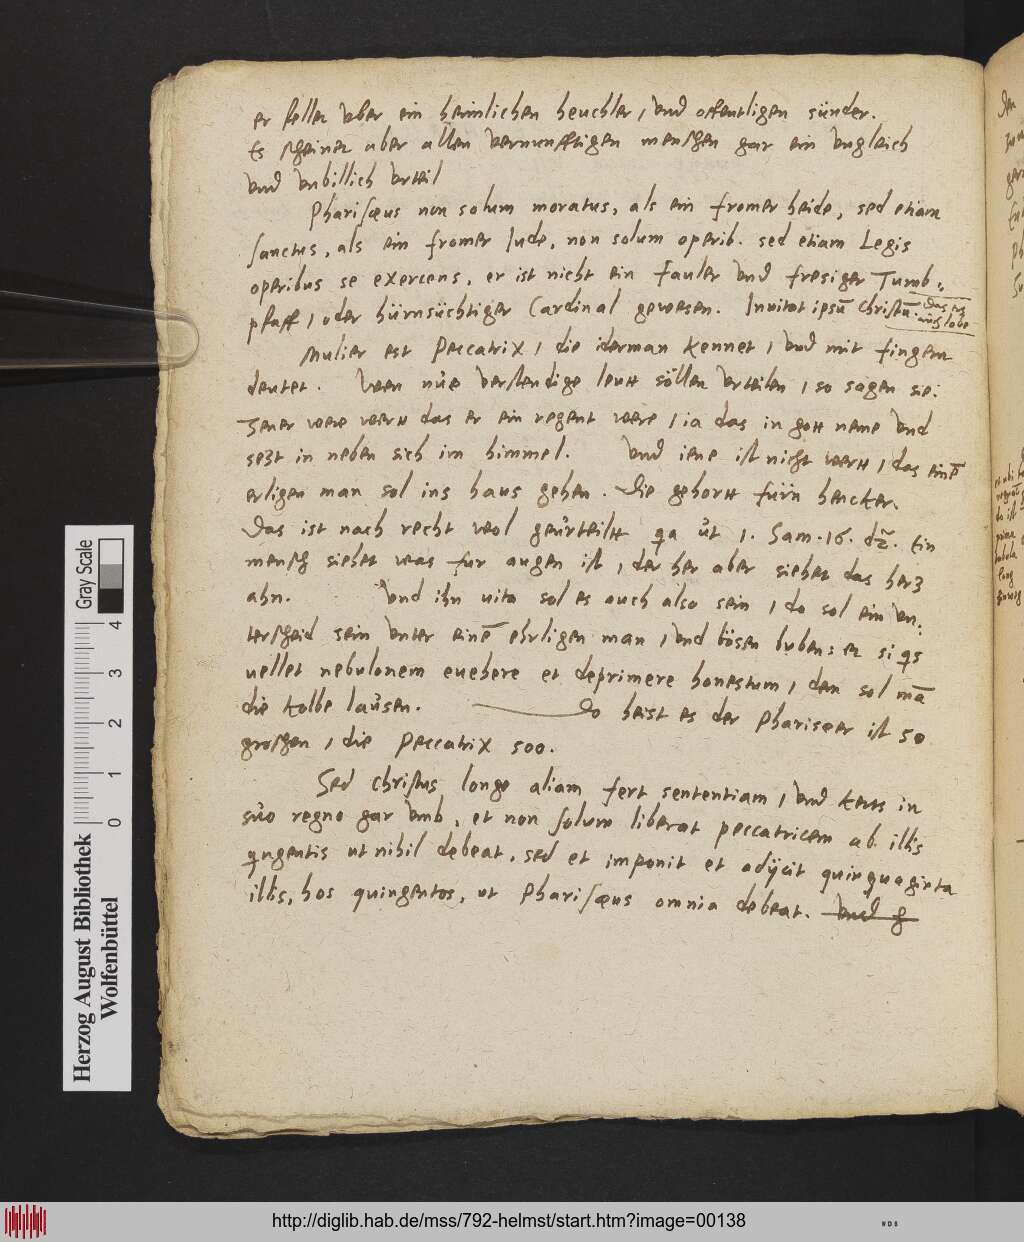 er fellet vber ein heimlichen heuchler, vnd offentligen sünder.
Es scheinet aber allen vernunfftigen menschen gar ein vngleich
vnd vnbillich vrteil
Pharisæus non solum moratus, als ein fromer heide, sed etiam
sanctus, als ein fromer Jude, non solum operib. sed etiam Legis
operibus se exercens, er ist nicht ein fauler vnd fresiger Tumb:
pfaff, oder hürnsüchtiger Cardinal gewesen. Inuitat ipsū Christū.
das ich
auch lobe
Mulier est Peccatrix, die iderman kennet, vnd mit fingern
deutet. Wen nůe verstendige leutt söllen vrteilen, so sagen sie:
Jener were wertt das er ein regent were, ia das in gott neme vnd
sezt in neben sich im himmel. Vnd iene ist nicht wertt, das einē
erligen man sol ins haus gehen. Die gehortt fürn hencker.
Das ist nach recht wol geürteiltt qa ut 1. Sam. 16. dr. Ein
mensch siehet was fur augen ist, der her aber siehet das herz
ahn. Vnd ihn uita sol es auch also sein, do sol ein vn:
terscheid sein vnter einē ehrligen man, vnd bösen buben: et si qs
uellet nebulonem euehere et deprimere honestum, den sol mā
die kolbe lausen. Do heist es der Phariseer ist 50
groschen, die Peccatrix 500.
Sed Christus longe aliam fert sententiam, vnd kerts in
suo regno gar vmb, et non solum liberat peccatricem ab illis
qngentis ut nihil debeat, sed et imponit et adijcit quinquaginta
illis, hos quingentos, ut Pharisæus omnia debeat. Vnd g
Herzog August Bibliothek
Wolfenbüttel
Gray Scale
0 1 2 3 4
http://diglib.hab.de/mss/792-helmst/start.htm?image=00138